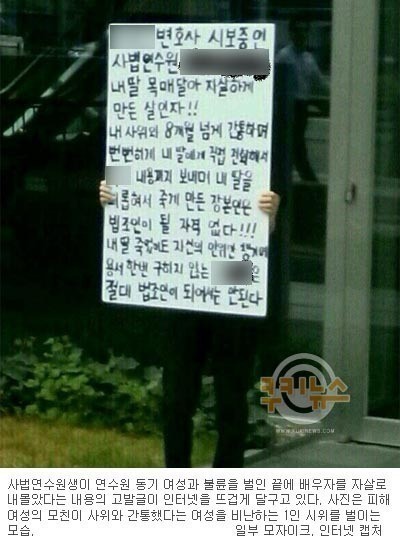 변호사 시보중인
사법연수원
내딸 목매달아 자살하게
만든 살인자!!
내 사위와 8개월 넘게 간통하며
뻔뻔하게 내 딸에게 직접 전화해서
내용까지 보내며 내 딸을
괴롭혀서 죽게 만든 장본인은
법조인이 될 자격 없다!!!
내딸 죽음에도 자신의 안위만 챙기며
용서 한번 구하지 않는 은
절대 법조인이 되어서는 안된다
쿠키뉴스
WWW.KUKINEWS.COM
사법연수원생이 연수원 동기 여성과 불륜을 벌인 끝에 배우자를 자살로
내몰았다는 내용의 고발글이 인터넷을 뜨겁게 달구고 있다. 사진은 피해
여성의 모친이 사위와 간통했다는 여성을 비난하는 1인 시위를 벌이는
모습. 일부 모자이크, 인터넷 캡처